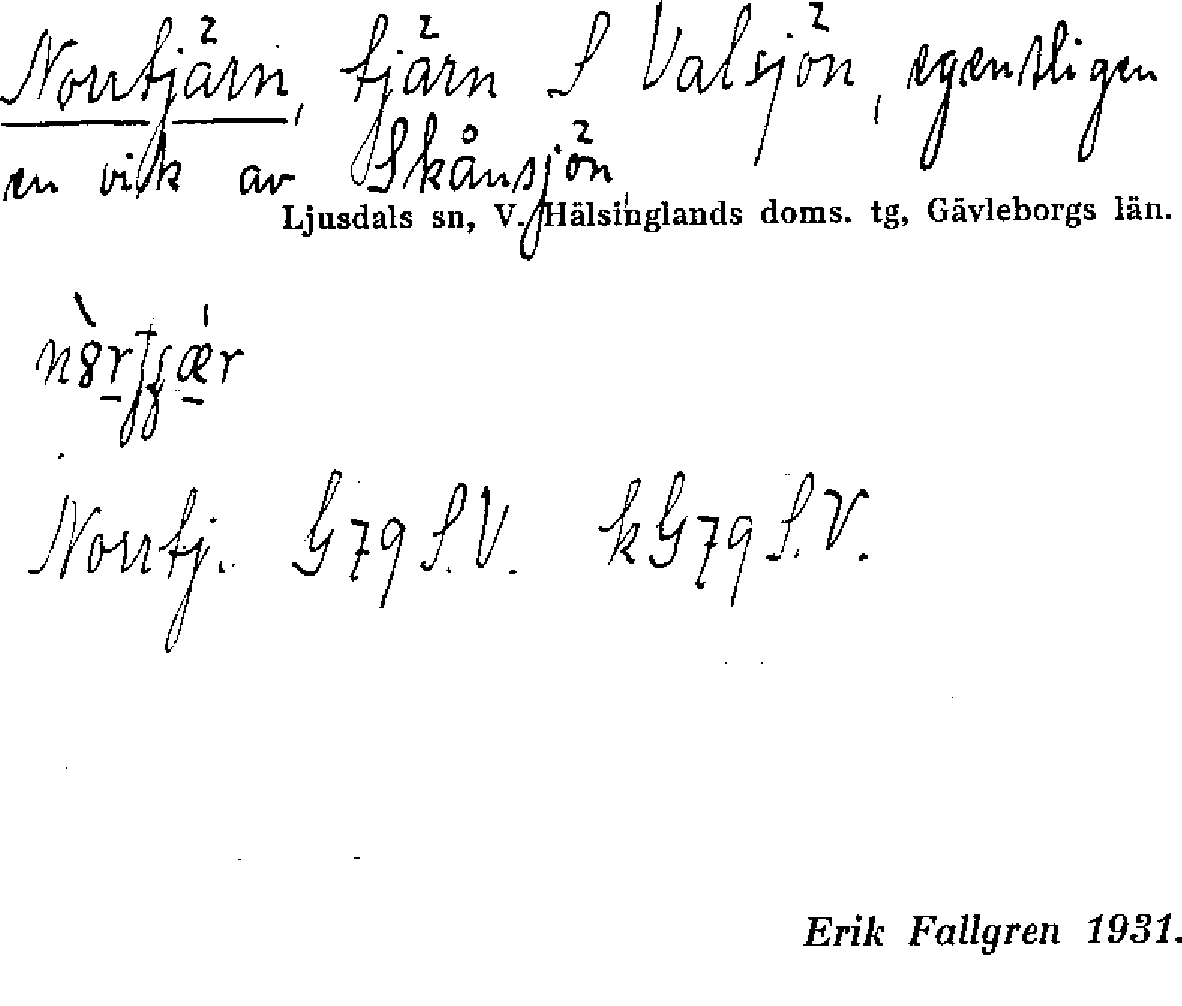 Norrtjärn, tjärn S Valsjön, egentligen
en vik av Skånsjön,
Ljusdals sn, V. Hälsinglands doms. tg, Gävleborgs län.
Norrtj. G79 S.V. kG79 S.V.
Erik Fallgren 1931.